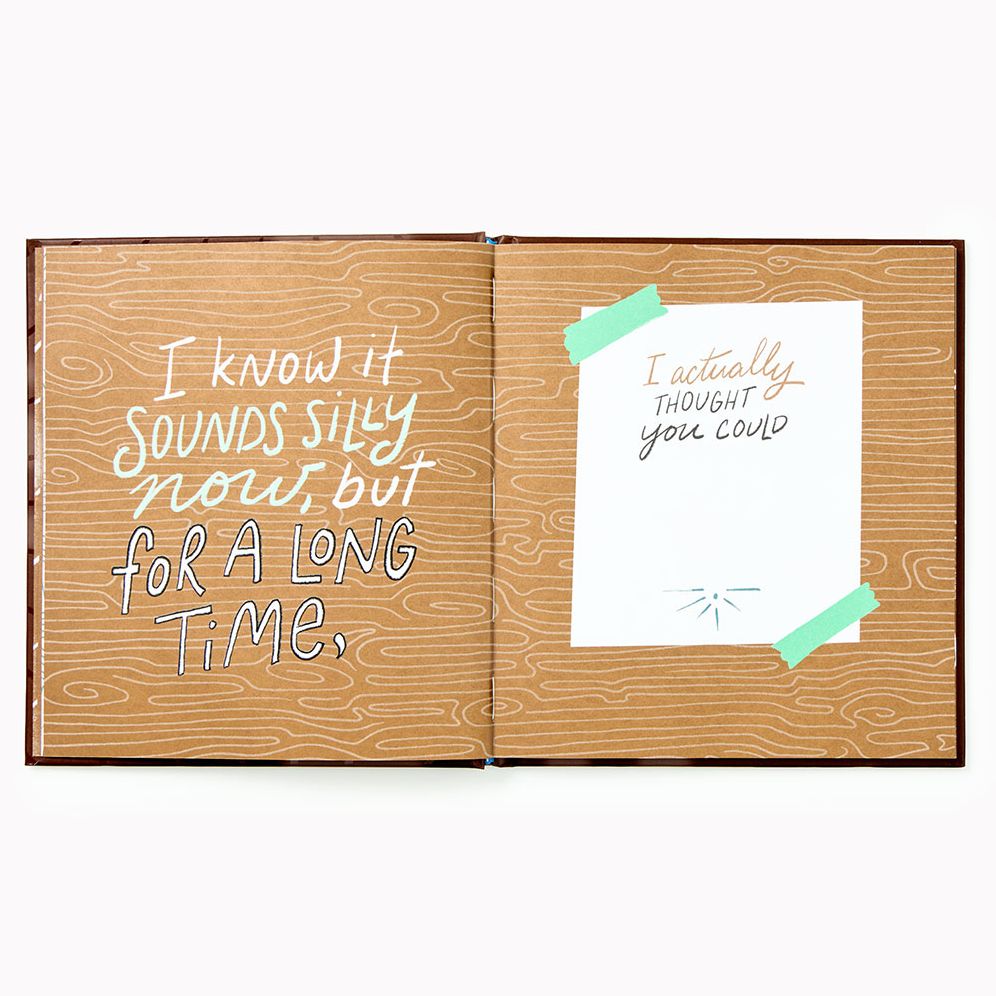 I KNOW it
SOUNDS SiLLY
now, but
foR A LONG
TiMe,
I actually
THOUGHT
you COULD